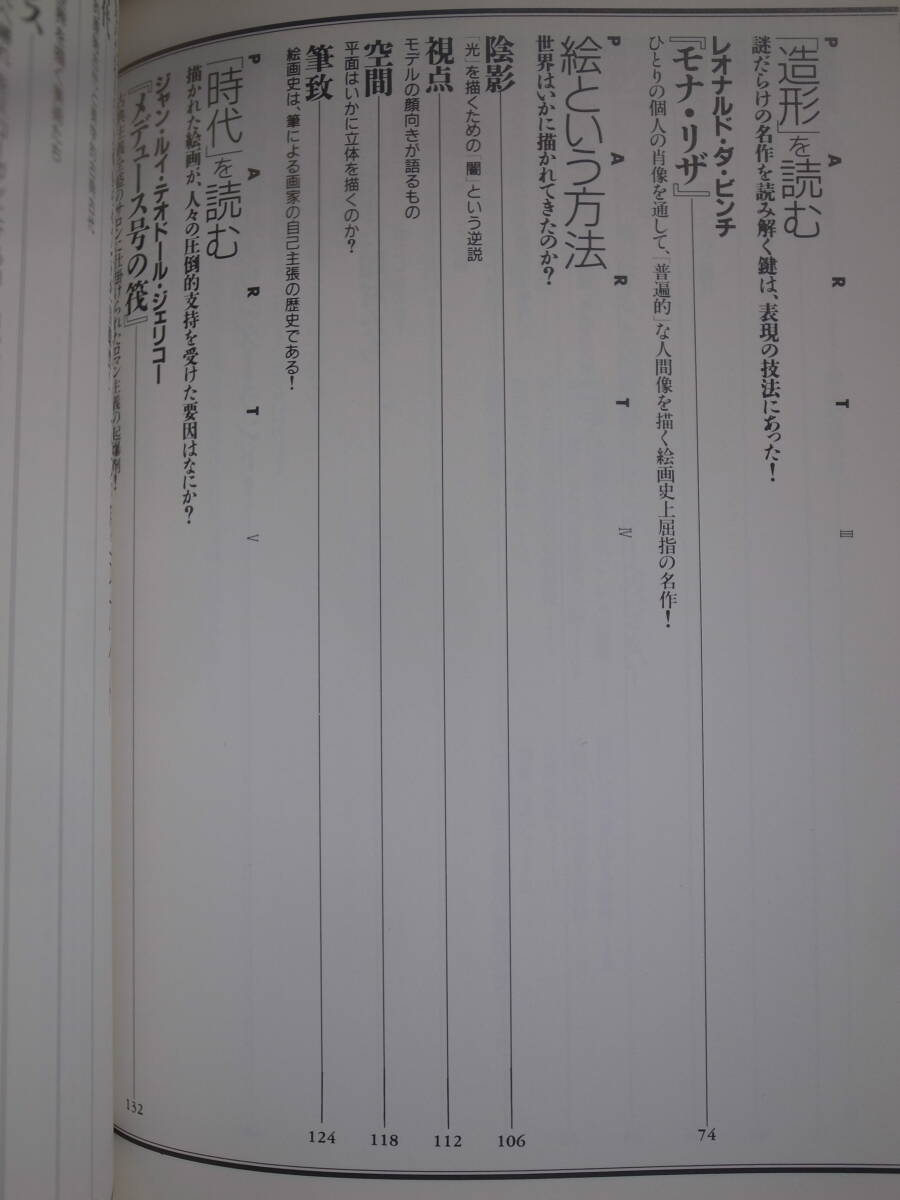 PART III
「造形」を読む
謎だらけの名作を読み解く鍵は、表現の技法にあった！
レオナルド・ダ・ビンチ
『モナ・リザ』 74
ひとりの個人の肖像を通して、「普遍的」な人間像を描く絵画史上屈指の名作！
PART IV
絵という方法
世界はいかに描かれてきたのか？
陰影 106
「光」を描くための「闇」という逆説
視点 112
モデルの顔向きが語るもの
空間 118
平面はいかに立体を描くのか？
筆致 124
絵画史は、筆による画家の自己主張の歴史である！
PART V
「時代」を読む
描かれた絵画が、人々の圧倒的支持を受けた要因はなにか？
ジャン・ルイ・テオドール・ジェリコー
『メデュース号の筏』 132